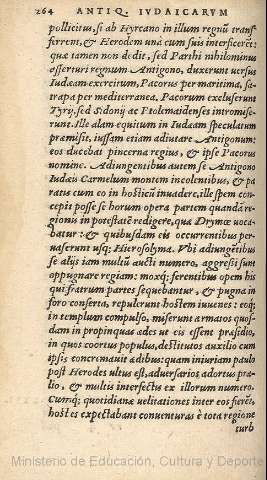 264 ANTIQ. IVDAICARVM
pollicitus, si ab Hyrcano in illum regnũ trans
ferrent, & Herodem unà cum suis interficerẽt:
quæ tamen non dedit, sed Parthi nihilominus
asserturi regnum Antigono, duxerunt uersus
Iudæam exercitum, Pacorus per maritima, sa-
trapa per mediterranea. Pacorum excluserunt
Tyrij, sed Sidonij ac Ptolemaidenses intromise-
runt. Ille alam equitum in Iudæam speculatum
præmisit, iussam etiam adiutare Antigonum:
eos ducebat pincerna regius, & ipse Pacorus
nomine. Adiungentibus autem se Antigono
Iudæis Carmelum montem incolentibus, & pa
ratis cum eo in hosticũ inuadere, ille spem con-
cepit posse se horum opera partem quandã re-
gionis in potestatẽ redigere, quæ Drymæ uoca-
batur: & quibusdam eis occurrentibus per-
uaserunt usq; Hierosolyma. Vbi adiungẽtibus
se alijs iam multũ aucti numero, aggreßi sunt
oppugnare regiam: moxq; ferentibus opem his
qui fratrum partes sequebantur, & pugna in
foro conserta, repulerunt hostem iuuenes: eoq;
in templum compulso, miserunt armatos quos-
dam in propinquas ædes ut eis essent præsidio,
in quos coortus populus, destitutos auxilio cum
ipsis concremauit ædibus: quam iniuriam paulò
post Herodes ultus est, aduersarios adortus præ-
lio, & multis interfectis ex illorum numero.
Cumq; quotidianæ uelitationes inter eos fierẽt,
hostes expectabant conuenturas è tota regione
turb
Ministerio de Educación, Cultura y Deporte